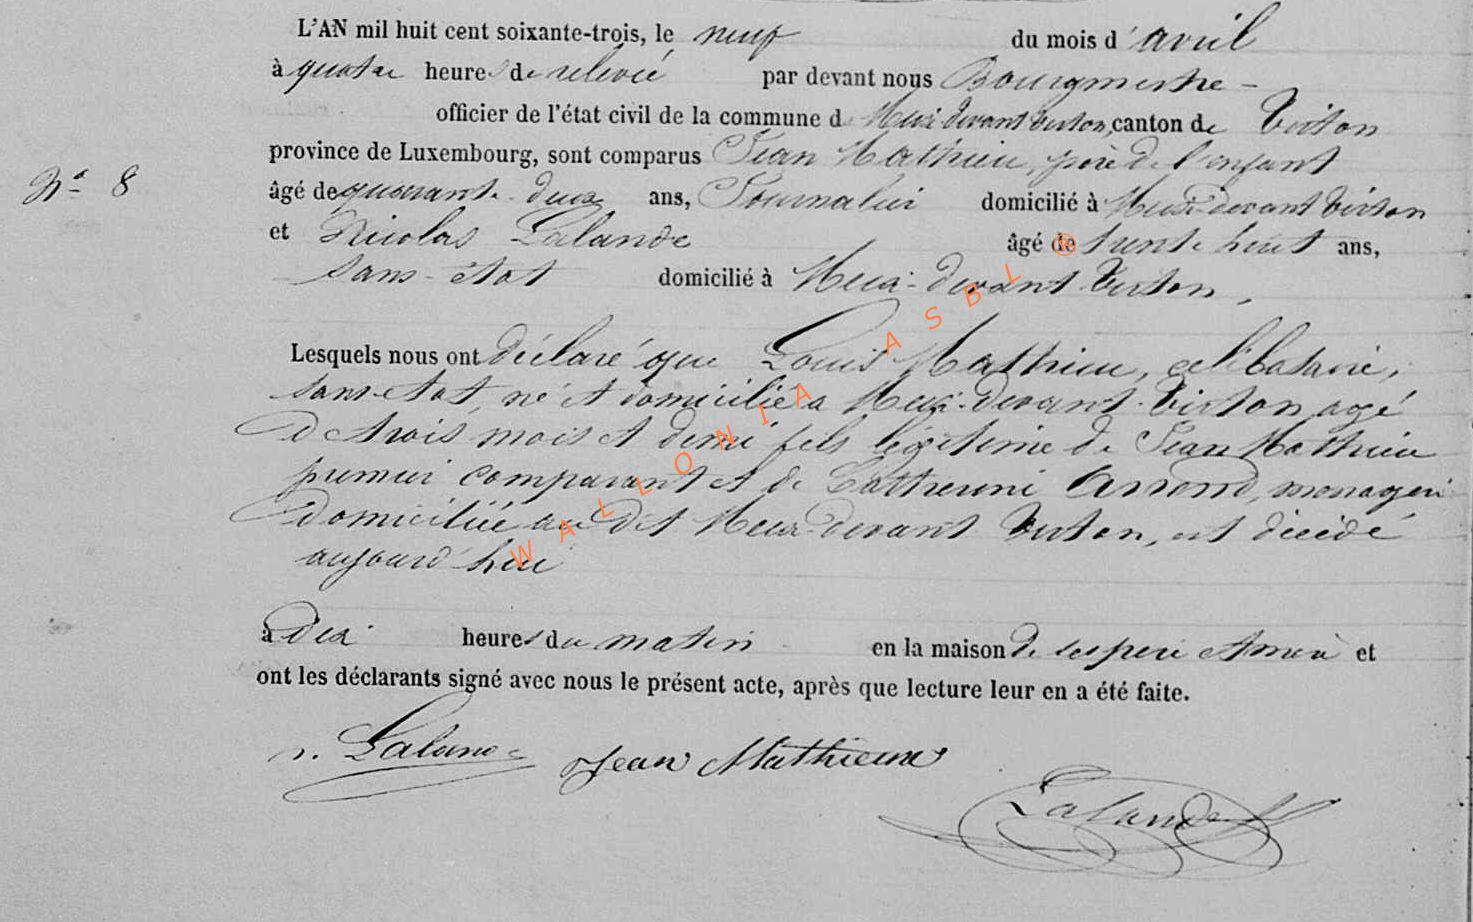 L'AN mil huit cent soixante-trois, le neuf du mois d'avril
à quatre heures de relevée par devant nous Bourgmestre -
officier de l'état civil de la commune de Meix devant Virton, canton de Virton
province de Luxembourg, sont comparus Jean Mathieu, père de l'enfant
Nº 8
âgé de quarante deux ans, Journalier domicilié à Meix-devant Virton
et Nicolas Lalande âgé de trente huit ans,
sans-état domicilié à Meix-devant Virton,
Lesquels nous ont déclaré que Louis Mathieu, célibataire,
sans état, né et domicilié à Meix-devant-Virton, agé
de trois mois et demi fils légitime de Jean Mathieu
premier comparant et de Catherine Arrond, menagère
domiciliée au dit Meix-devant Virton, est décédé
aujourd'hui
à dix heures du matin en la maison de ses père et mère et
ont les déclarants signé avec nous le présent acte, après que lecture leur en a été faite.
n. Lalande Jean Mathieux
Lalande
WALLONIA ASBL ®